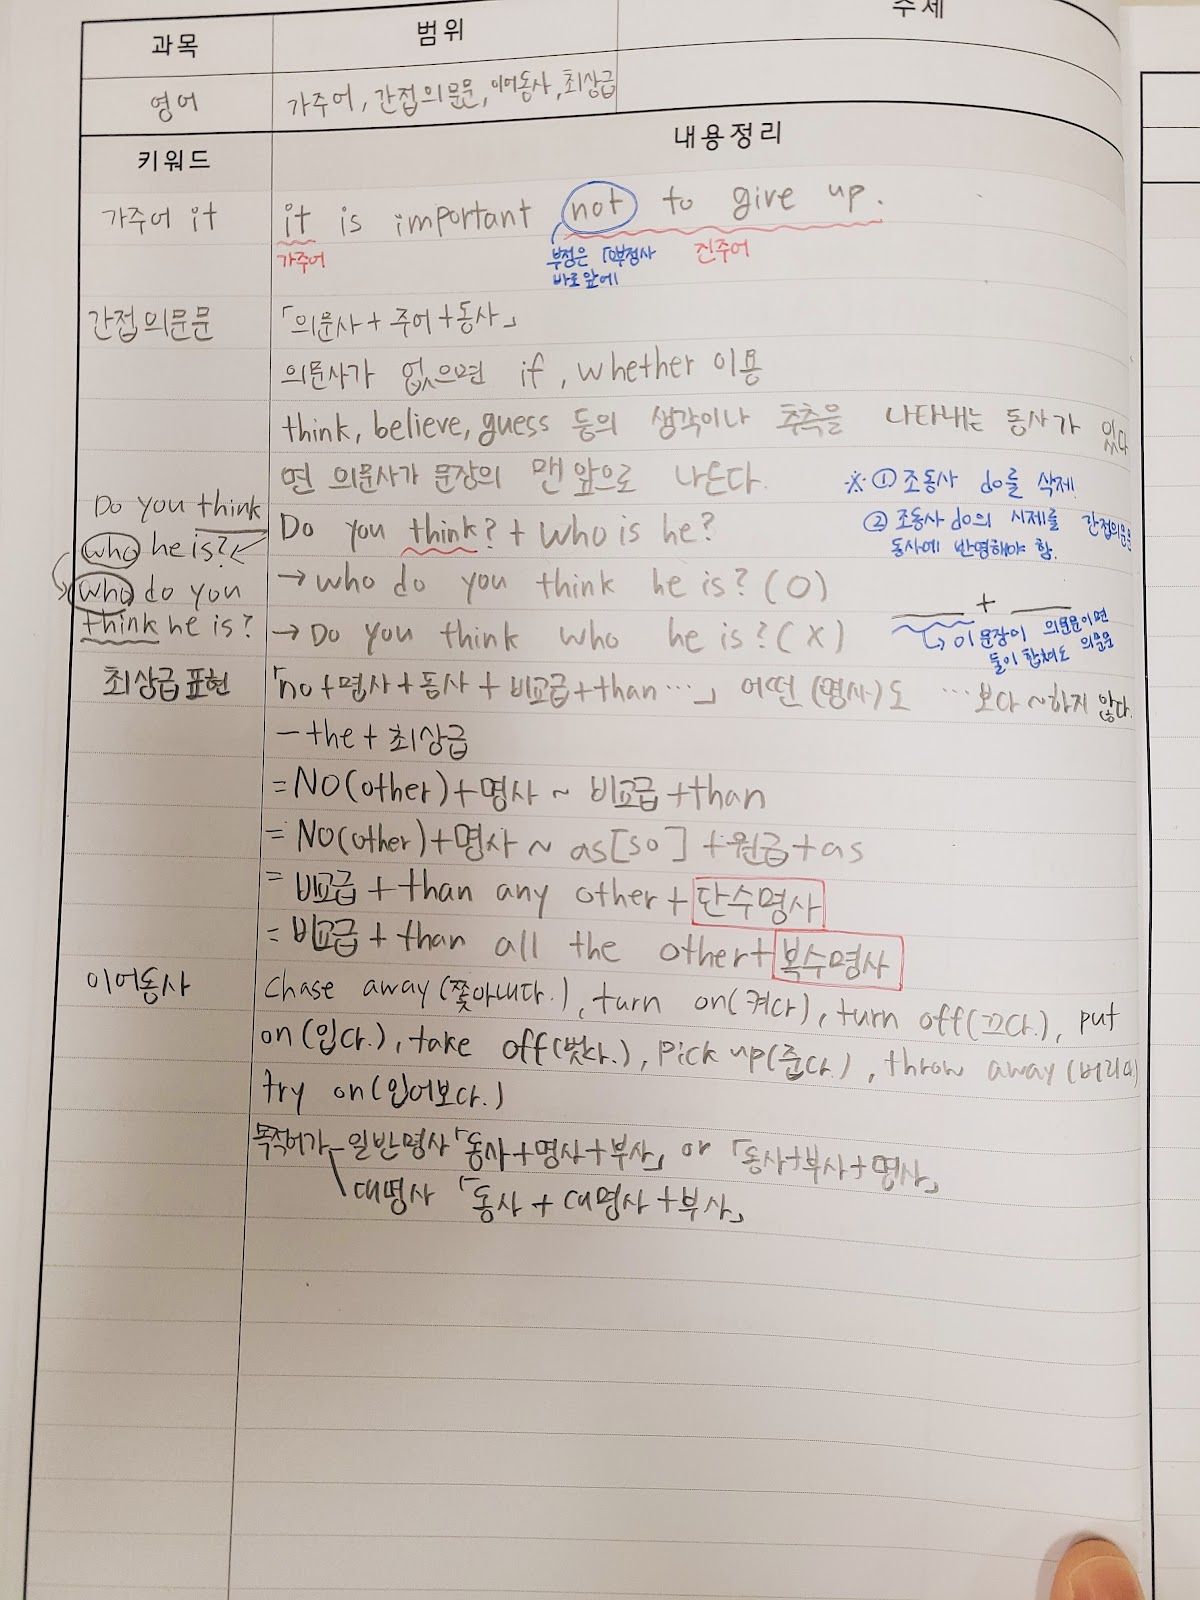 과목 범위 주제
영어 가주어, 간접의문문, 이어동사, 최상급
키워드 내용정리
가주어 it it is important not to give up.
가주어 부정은 to부정사 바로앞에 진주어
간접의문문 「의문사 + 주어 + 동사」
의문사가 없으면 if, whether 이용
think, believe, guess 등의 생각이나 추측을 나타내는 동사가 있다
면 의문사가 문장의 맨 앞으로 나온다.
※ ① 조동사 do를 삭제.
② 조동사 do의 시제를 간접의문문
동사에 반영해야 함.
Do you think
who he is?
who do you
think he is?
Do you think? + Who is he?
→ who do you think he is? (O)
→ Do you think who he is? (X)
+
↳ 이 문장이 의문문이면
둘이 합쳐도 의문문
최상급 표현 「no + 명사 + 동사 + 비교급 + than …」 어떤 (명사)도 …보다 ~하지 않다.
- the + 최상급
= NO(other) + 명사 ~ 비교급 + than
= NO(other) + 명사 ~ as[so] + 원급 + as
= 비교급 + than any other + 단수명사
= 비교급 + than all the other + 복수명사
이어동사 chase away(쫓아내다.), turn on(켜다), turn off(끄다.), put
on(입다.), take off(벗다.), pick up(줍다.), throw away(버리다)
try on(입어보다.)
목적어가 - 일반명사 「동사+명사+부사」 or 「동사+부사+명사」
\ 대명사 「동사 + 대명사 + 부사」